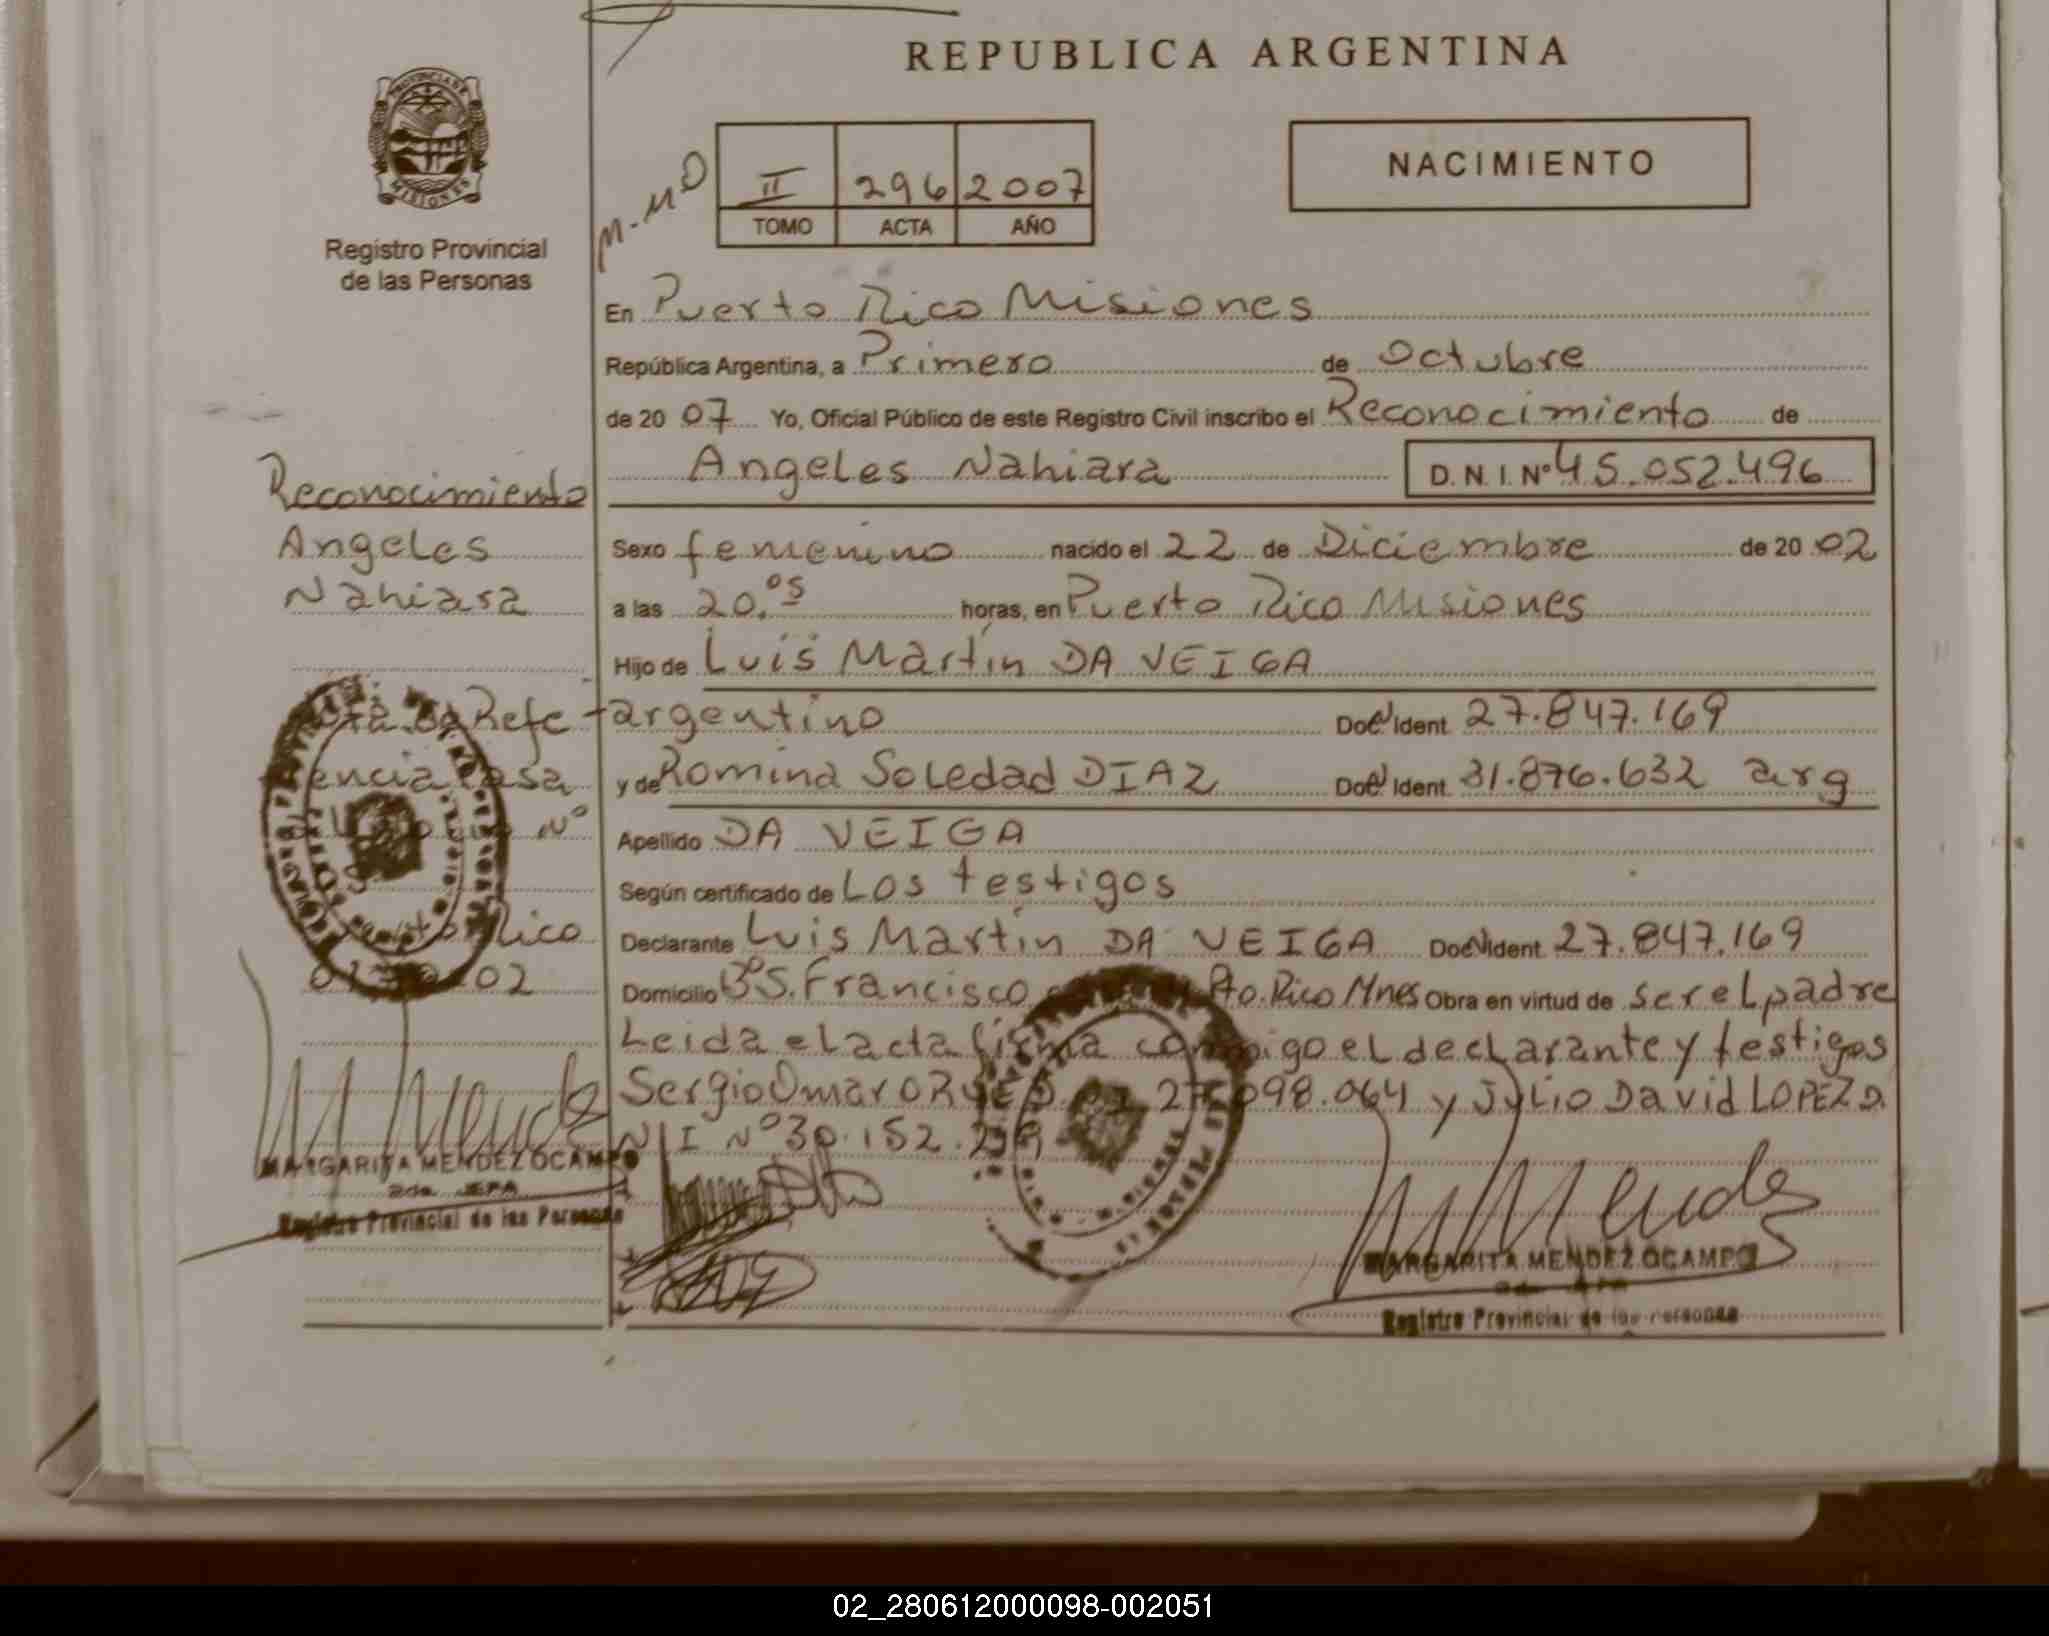 REPUBLICA ARGENTINA
PROVINCIA DE
MISIONES
Registro Provincial
de las Personas
II 296 2007
TOMO ACTA AÑO
NACIMIENTO
En Puerto Rico Misiones
República Argentina, a Primero de Octubre
de 20 07 Yo, Oficial Público de este Registro Civil inscribo el Reconocimiento de
Angeles Nahiara D.N.I. Nº 45.052.496
Reconocimiento
Angeles
Nahiara
Sexo femenino nacido el 22 de Diciembre de 20 02
a las 20.05 horas, en Puerto Rico Misiones
Hijo de Luis Martín DA VEIGA
argentino Doc Ident. 27.847.169
y de Romina Soledad DIAZ Doc Ident. 31.876.632 arg
Apellido DA VEIGA
Según certificado de Los testigos
Declarante Luis Martín DA VEIGA Doc Ident. 27.847.169
Domicilio Bº S. Francisco Pto. Rico Mnes Obra en virtud de ser el padre
Leida el acta firma conmigo el declarante y testigos
Sergio Omar 098.064 y Julio David LOPEZ D.
N I Nº 30.152.
Refe
rencia
Nº
Rico
02
MARGARITA MENDEZ OCAMPO
2da. JEFA
Registro Provincial de las Personas
MARGARITA MENDEZ OCAMPO
Registro Provincial de las Personas
02_280612000098-002051